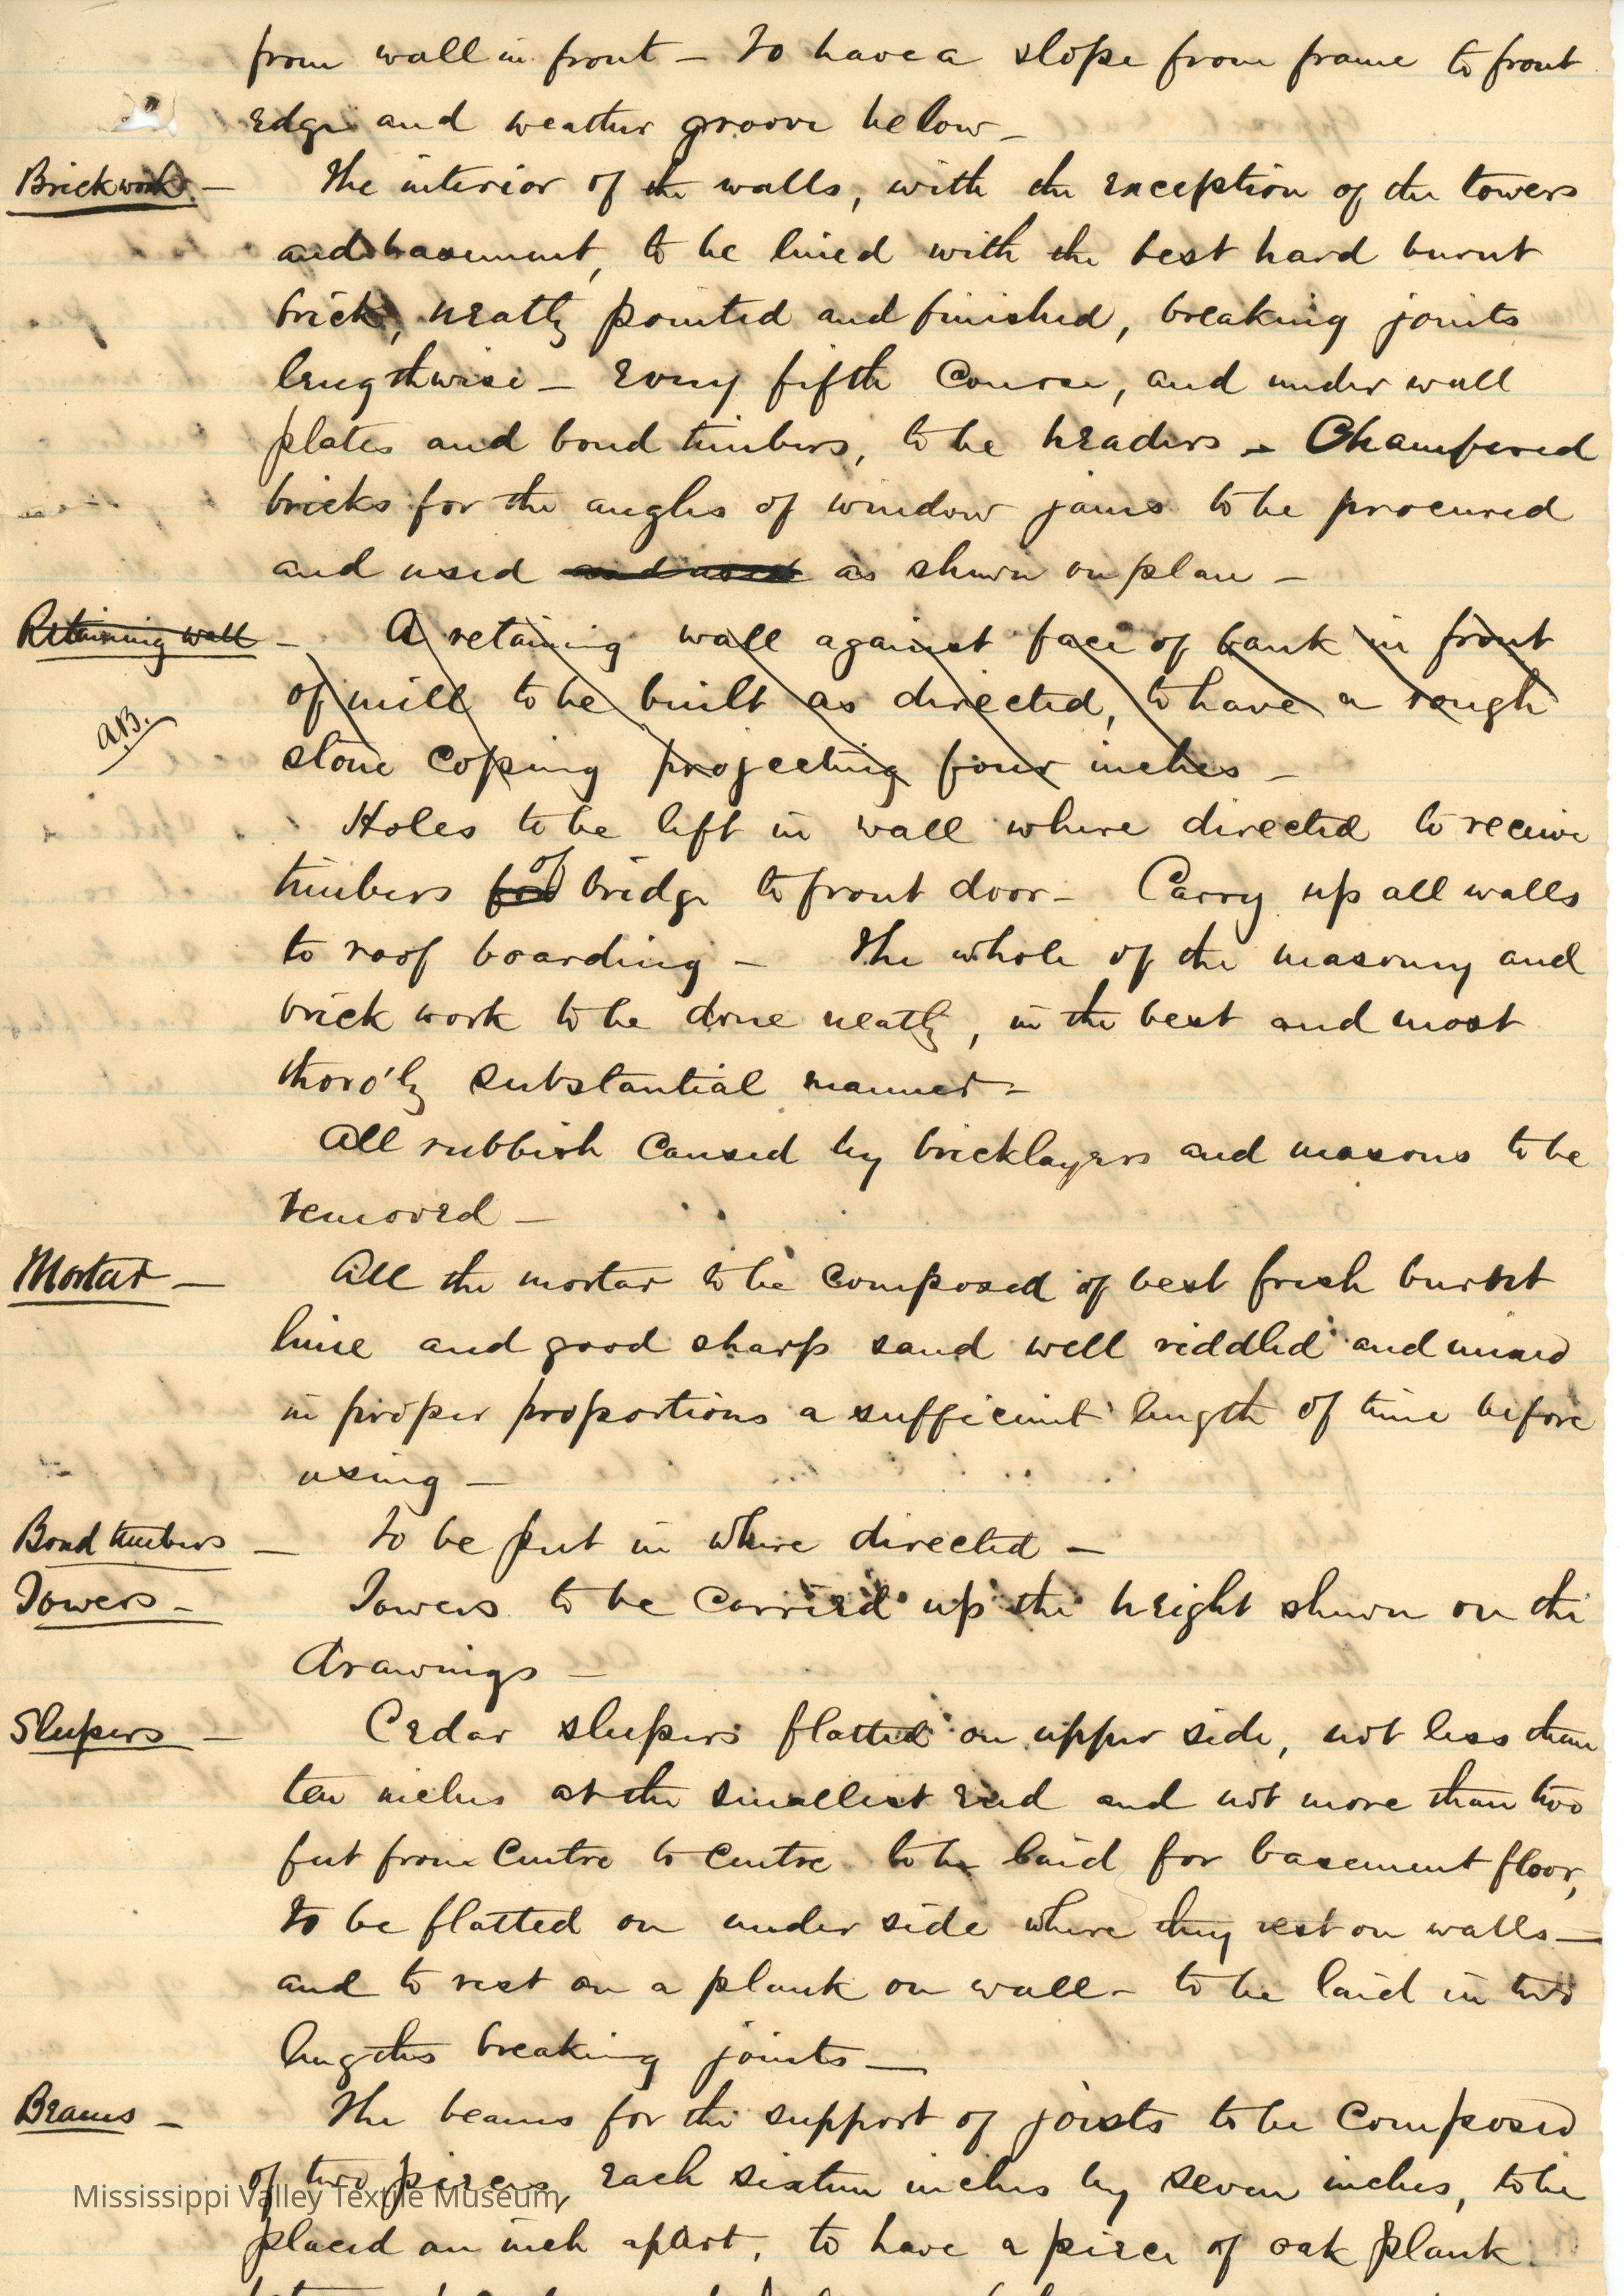 from wall in front – To have a slope from frame to front
edge and weather groove below –
Brickwork – The interior of the walls, with the exception of the towers
and basement, to be lined with the best hard burnt
brick, neatly pointed and finished, breaking joints
lengthwise – Every fifth Course, and under wall
plates and bond timbers, to be headers – Chamfered
bricks for the angles of window jams to be procured
and used and used as shewn on plan –
Retaining wall – A retaining wall against face of bank in front
of mill to be built as directed, to have a rough
A.B.
stone coping projecting four inches –
Holes to be left in wall where directed to receive
timbers for of bridge to front door – Carry up all walls
to roof boarding – The whole of the masonry and
brick work to be done neatly, in the best and most
thoro'ly substantial manner –
All rubbish caused by bricklayers and masons to be
removed –
Mortar – All the mortar to be composed of best fresh burnt
lime and good sharp sand well riddled and mixed
in proper proportions a sufficient length of time before
using –
Bond timbers – To be put in where directed –
Towers – Towers to be carried up the height shewn on the
drawings –
Sleepers – Cedar sleepers flatted on upper side, not less than
ten inches at the smallest end and not more than two
feet from Centre to Centre to be laid for basement floor,
to be flatted on under side where they rest on walls –
and to rest on a plank on wall – to be laid in two
lengths breaking joints –
Beams – The beams for the support of joists to be Composed
of two pieces, each sixteen inches by seven inches, to be
Mississippi Valley Textile Museum
placed an inch apart, to have a piece of oak plank